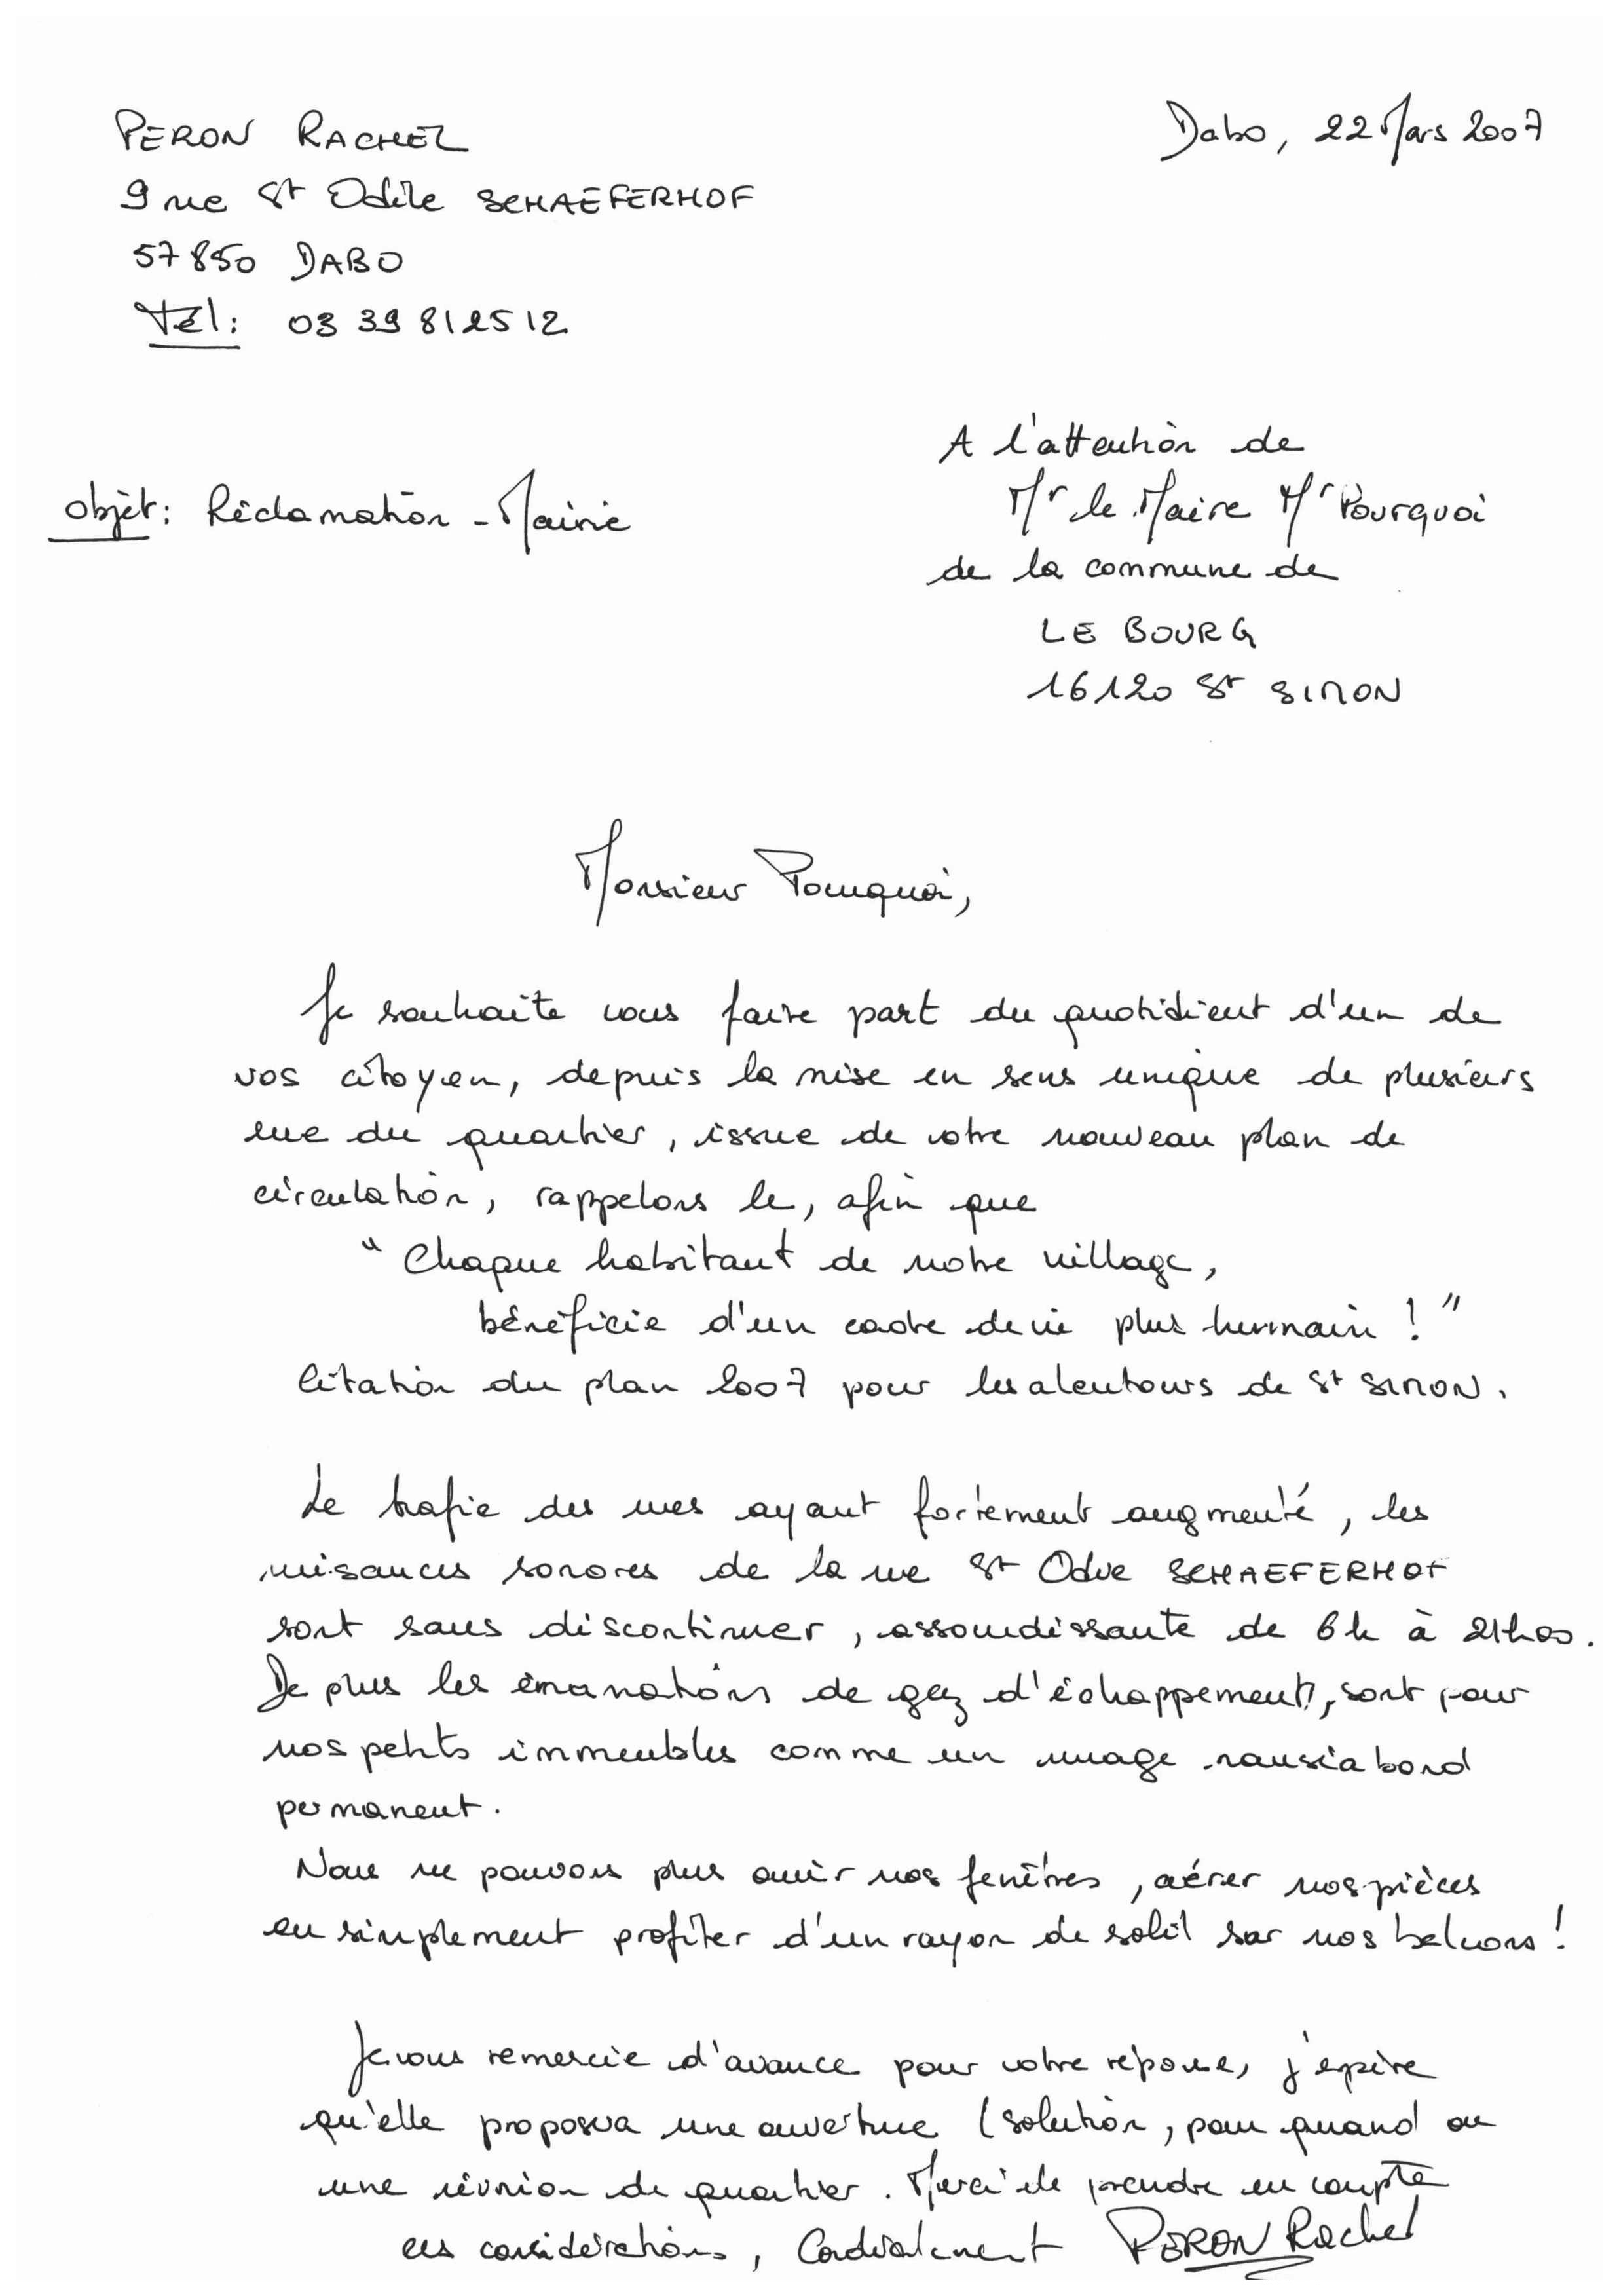 PERON RACHEL
Dabo, 22 Mars 2007
9 rue St Odile SCHAEFERHOF
57850 DABO
Tél: 03 39 81 25 12
A l'attention de
Mr le Maire Mr Pourquoi
de la commune de
LE BOURG
16120 St SIMON
objet: Réclamation - Mairie
Monsieur Pourquoi,
Je souhaite vous faire part du quotidient d'un de
vos citoyen, depuis la mise en sens unique de plusieurs
rue du quartier, issue de votre nouveau plan de
circulation, rappelons le, afin que
"Chaque habitant de notre village,
bénéficie d'un cadre de vie plus humain !"
Citation du plan 2007 pour les alentours de St SIMON.
Le trafic des rues ayant fortement augmenté, les
nuisances sonores de la rue St Odile SCHAEFERHOF
sont sans discontinuer, assourdissante de 6h à 21h00.
De plus les émanations de gaz d'échappement, sont pour
nos petits immeubles comme un nuage nauséabond
permanent.
Nous ne pouvons plus ouvrir nos fenêtres, aérer nos pièces
ou simplement profiter d'un rayon de soleil sur nos balcons !
Je vous remercie d'avance pour votre réponse, j'espère
qu'elle proposera une ouverture (solution, pour quand ou
une réunion de quartier. Merci de prendre en compte
ces considérations, Cordialement PERON Rachel